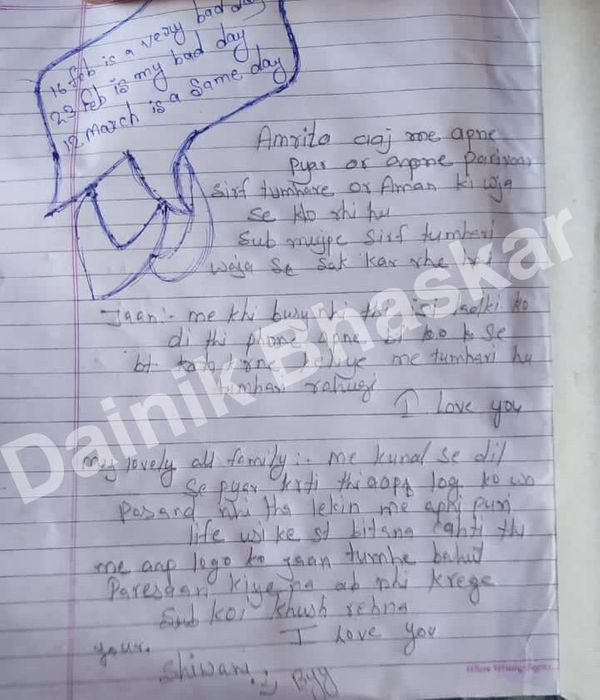 16 feb is a very bad day
23 feb is my bad day
12 March is a same day
Amrita aaj me apne
pyar or apne parivar
sirf tumhare or Aman ki wja
se kho rhi hu
Sub mujpe sirf tumhari
waja se sak kar rhe hai
Jaan:- me khi busy nhi thi isi ladki ko
di thi phone apne bf ko se
bt krne keliye me tumhari hu
tumhari rahugi
I Love you
My lovely all family:- me kunal se dil
se pyar krti thi aapq log ko wo
pasand nhi tha lekin me apni puri
life usi ke st bitana cahti thi
me aap logo ko jaan tumhe bahut
Paresaan kiye na ab nhi krege
Sub koi khush rehna
I Love you
your.
Shiwani :-) Byy
Dainik Bhaskar